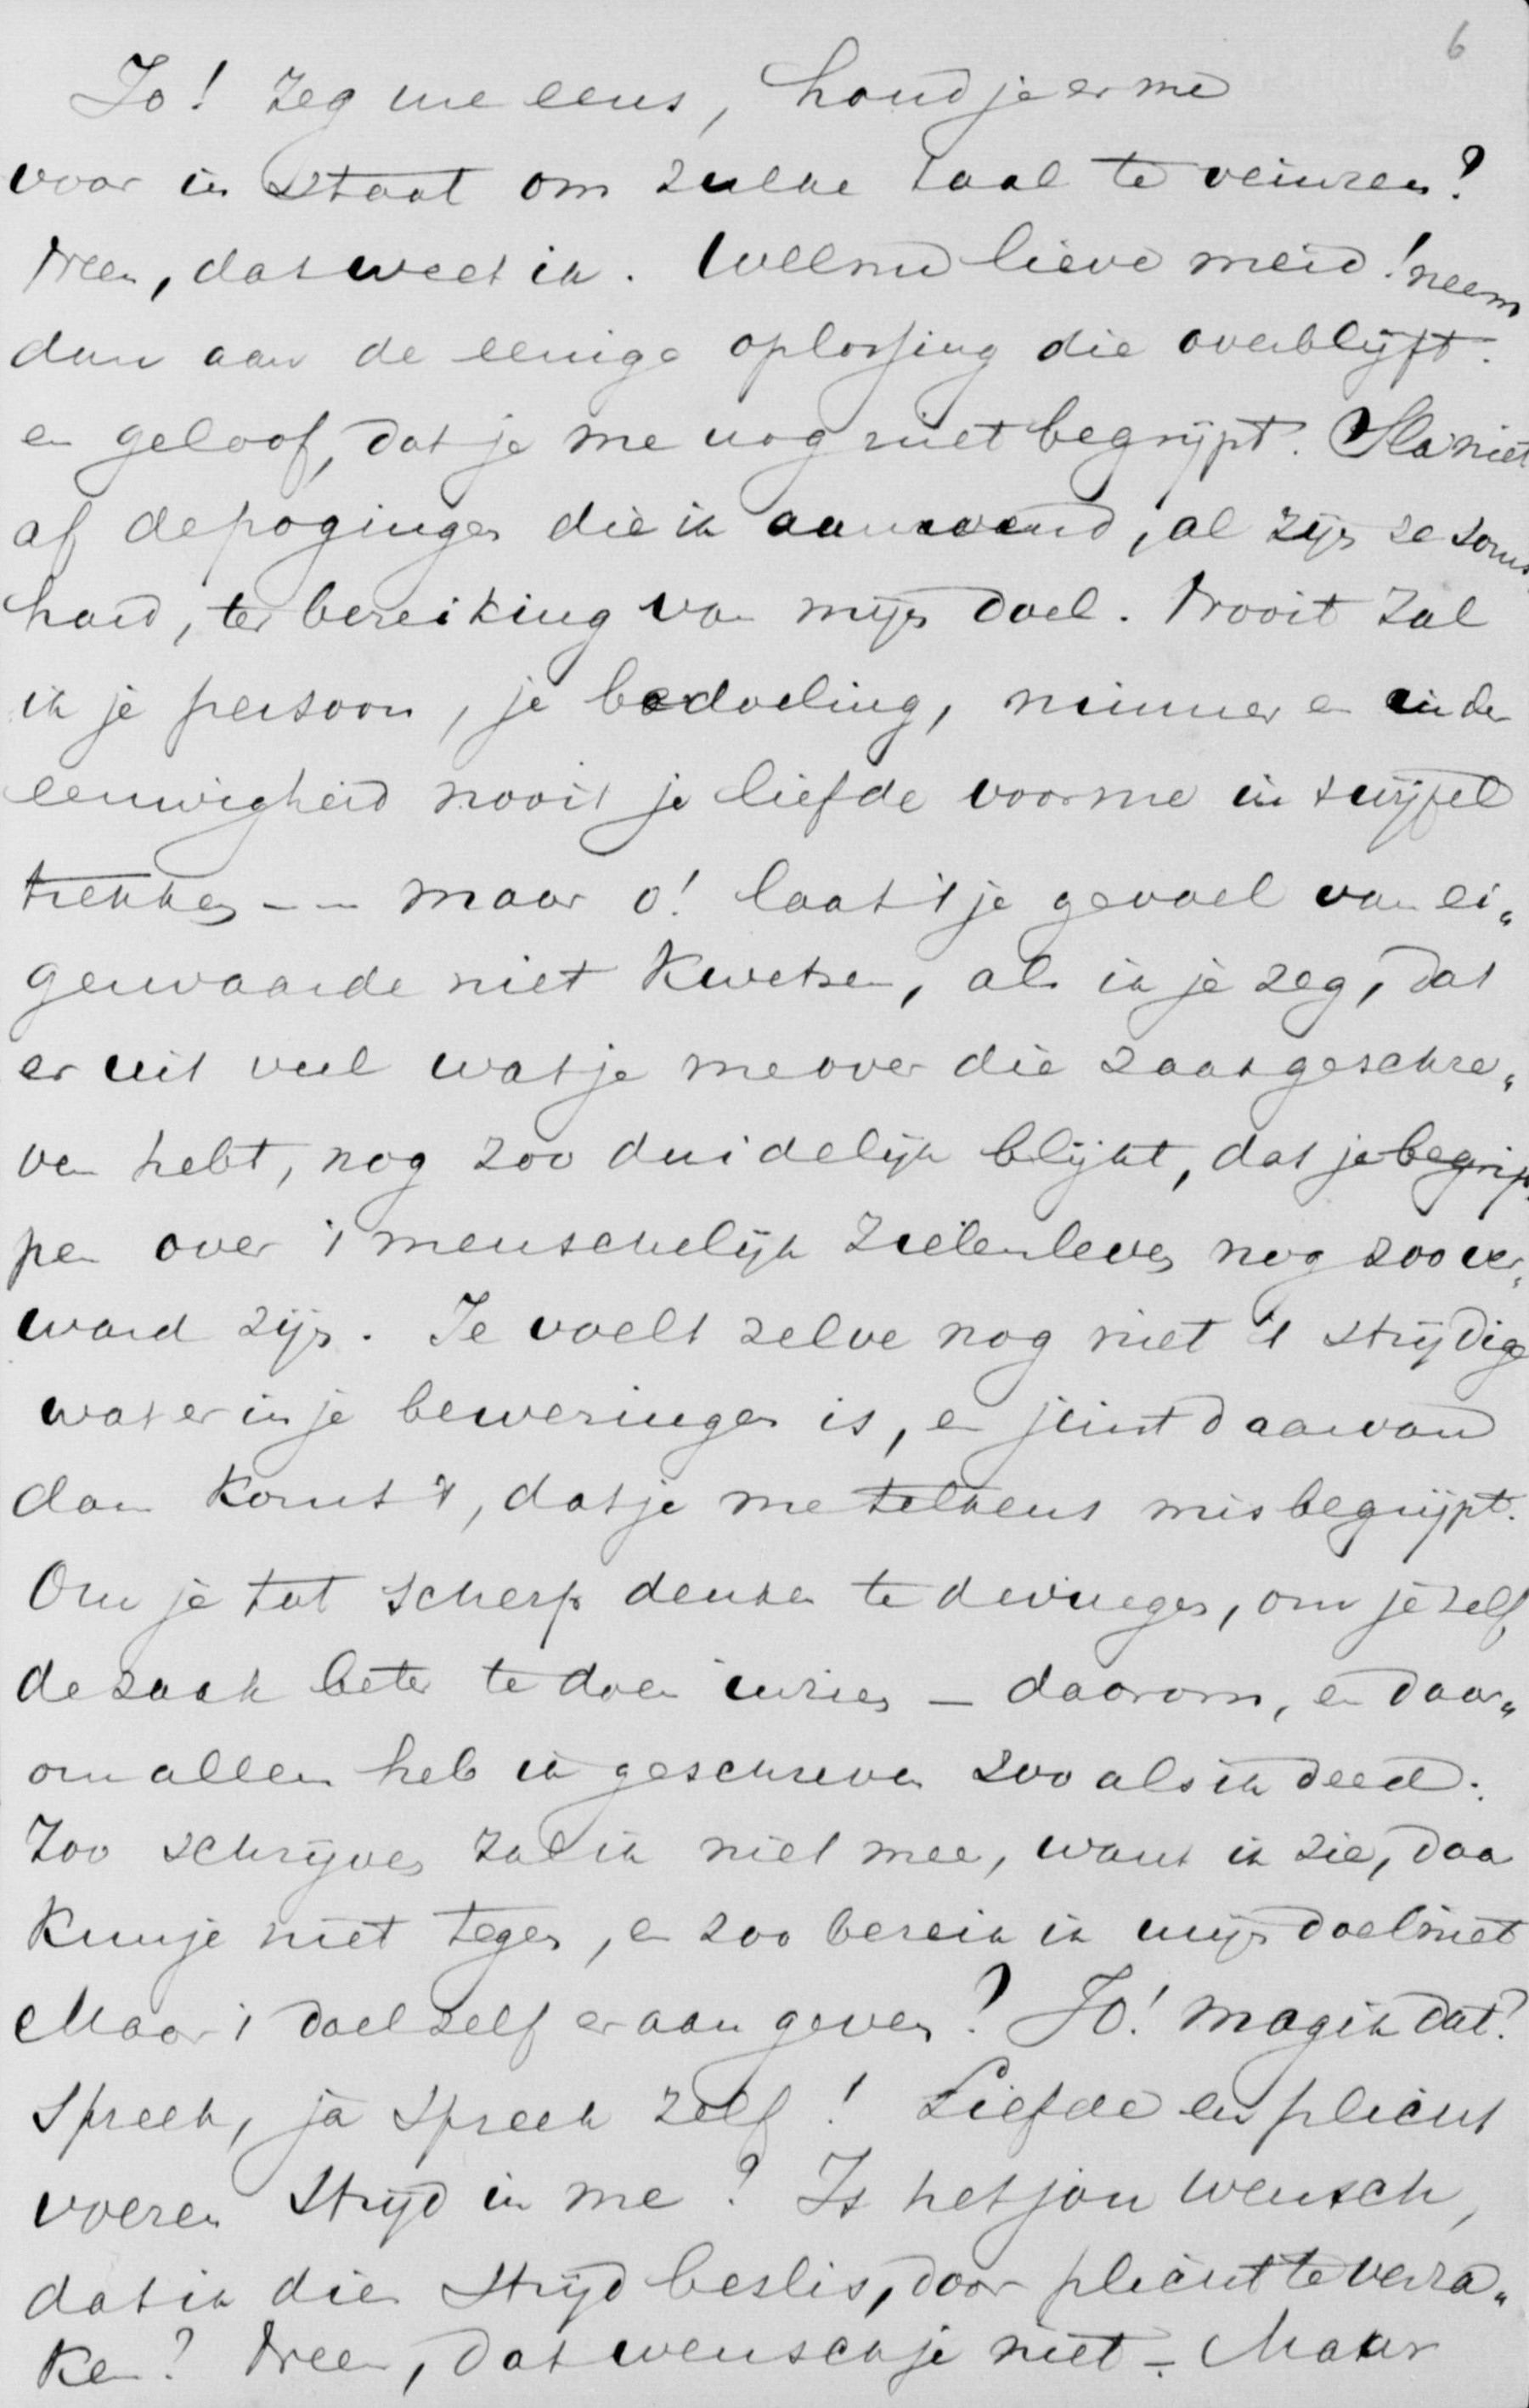 6
Jo! Zeg me eens, houd je er me
voor in staat om zulke taal te veinzen?
Neen, dat weet ik. Welnu lieve meid! neem
dan aan de eenige oplossing die overblijft.
en geloof, dat je me nog niet begrijpt. Sla niet
af de pogingen die ik aanwend, al zijn ze soms
hard, ter bereiking van mijn doel. Nooit zal
ik je persoon, je bedoeling, nimmer en in der
eeuwigheid nooit je liefde voor me in twijfel
trekken -- maar o! laat 't je gevoel van ei„
genwaarde niet kwetsen, als ik je zeg, dat
er uit veel wat je me over die zaak geschre„
ven hebt, nog zoo duidelijk blijkt, dat je begrip„
pen over 't menschelijk zielenleven nog zoo ver„
ward zijn. Je voelt zelve nog niet 't strijdige
wat er in je beweringen is, en juist daarvan
dan komt 't, dat je me telkens misbegrijpt.
Om je tot scherp denken te dwingen, om je zelf
de zaak beter te doen inzien – daarom, en daar„
om alleen heb ik geschreven zoo als ik deed.
Zoo schrijven zal ik niet mee, want ik zie, daar
kun je niet tegen, en zoo bereik ik mijn doel niet
Maar 't doel zelf er aan geven? Jo! mag ik dat?
Spreek, ja spreek zelf! Liefde en plicht
voeren strijd in me? Is het jou wensch,
dat ik dien strijd beslis, door plicht te verza„
ken? Neen, dat wensch je niet – Maar